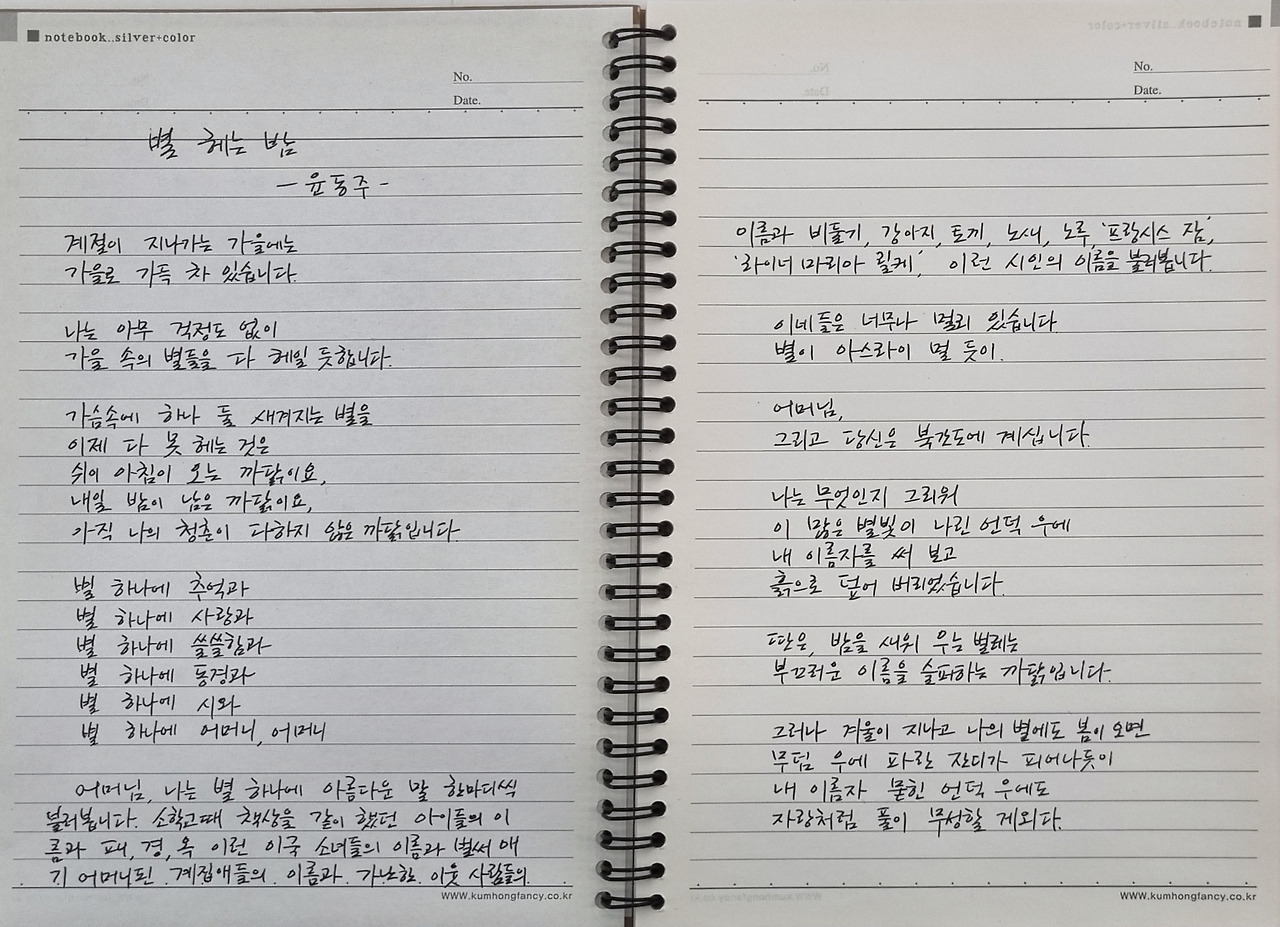 notebook..silver+color
No.
Date.
별 헤는 밤
- 윤동주 -
계절이 지나가는 가을에는
가을로 가득 차 있습니다.
나는 아무 걱정도 없이
가을 속의 별들을 다 헤일 듯합니다.
가슴속에 하나 둘 새겨지는 별을
이제 다 못 헤는 것은
쉬이 아침이 오는 까닭이요,
내일 밤이 남은 까닭이요,
아직 나의 청춘이 다하지 않은 까닭입니다.
별 하나에 추억과
별 하나에 사랑과
별 하나에 쓸쓸함과
별 하나에 동경과
별 하나에 시와
별 하나에 어머니, 어머니
어머님, 나는 별 하나에 아름다운 말 한마디씩
불러봅니다. 소학교때 책상을 같이 했던 아이들의 이
름과 패, 경, 옥 이런 이국 소녀들의 이름과 벌써 애
기 어머니된 계집애들의 이름과 가난한 이웃 사람들의
www.kumhongfancy.co.kr
No.
Date.
이름과 비둘기, 강아지, 토끼, 노새, 노루, '프랑시스 잠',
'라이너 마리아 릴케', 이런 시인의 이름을 불러봅니다.
이네들은 너무나 멀리 있습니다.
별이 아스라이 멀 듯이.
어머님,
그리고 당신은 북간도에 계십니다.
나는 무엇인지 그리워
이 많은 별빛이 나린 언덕 우에
내 이름자를 써 보고
흙으로 덮어 버리었습니다.
딴은, 밤을 새워 우는 벌레는
부끄러운 이름을 슬퍼하는 까닭입니다.
그러나 겨울이 지나고 나의 별에도 봄이 오면
무덤 우에 파란 잔디가 피어나듯이
내 이름자 묻힌 언덕 우에도
자랑처럼 풀이 무성할 게외다.
www.kumhongfancy.co.kr